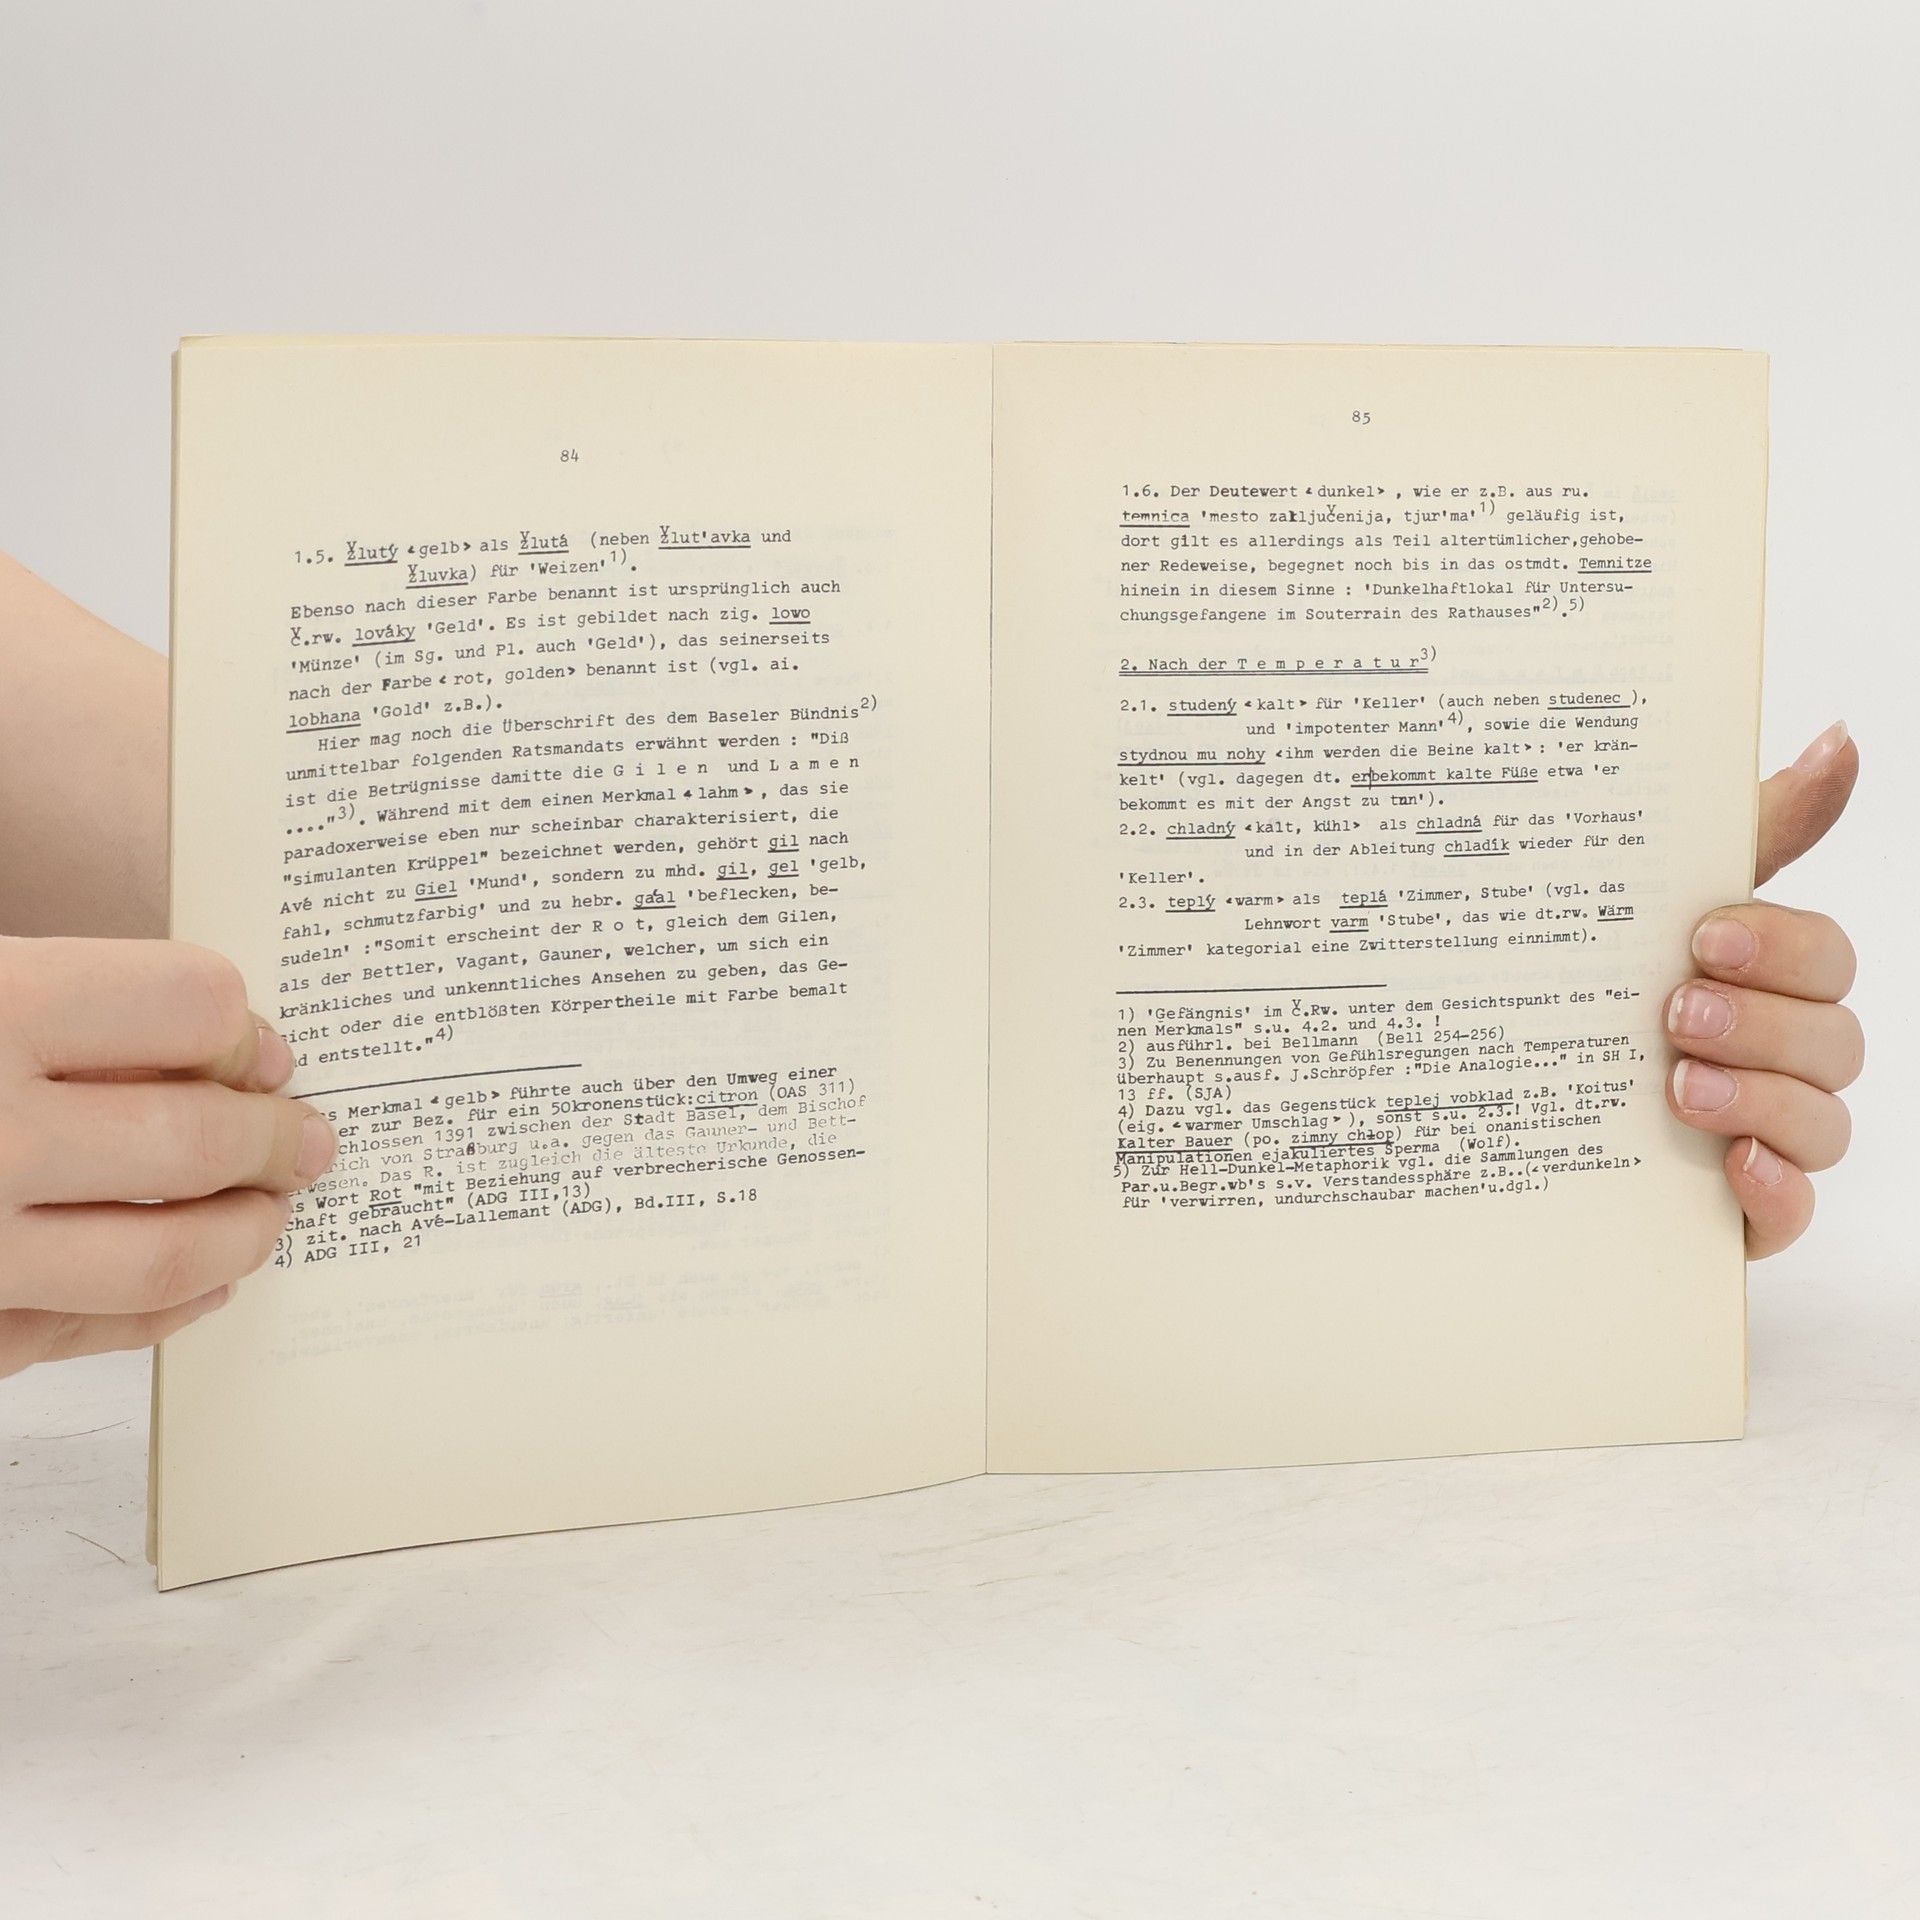 84
1.5. žlutý <gelb> als žlutá (neben žlut'avka und
žluvka) für 'Weizen'1).
Ebenso nach dieser Farbe benannt ist ursprünglich auch
č.rw. lováky 'Geld'. Es ist gebildet nach zig. lowo
'Münze' (im Sg. und Pl. auch 'Geld'), das seinerseits
nach der Farbe <rot, golden> benannt ist (vgl. ai.
lobhana 'Gold' z.B.).
Hier mag noch die Überschrift des dem Baseler Bündnis2)
unmittelbar folgenden Ratsmandats erwähnt werden : "Diß
ist die Betrügnisse damitte die G i l e n und L a m e n
...."3). Während mit dem einen Merkmal <lahm>, das sie
paradoxerweise eben nur scheinbar charakterisiert, die
"simulanten Krüppel" bezeichnet werden, gehört gil nach
Avé nicht zu Giel 'Mund', sondern zu mhd. gil, gel 'gelb,
fahl, schmutzfarbig' und zu hebr. gáal 'beflecken, be-
sudeln' :"Somit erscheint der R o t, gleich dem Gilen,
als der Bettler, Vagant, Gauner, welcher, um sich ein
kränkliches und unkenntliches Ansehen zu geben, das Ge-
sicht oder die entblößten Körpertheile mit Farbe bemalt
nd entstellt."4)
s Merkmal <gelb> führte auch über den Umweg einer
er zur Bez. für ein 50kronenstück:citron (OAS 311)
chlossen 1391 zwischen der Stadt Basel, dem Bischof
rich von Straßburg u.a. gegen das Gauner- und Bett-
rwesen. Das R. ist zugleich die älteste Urkunde, die
s Wort Rot "mit Beziehung auf verbrecherische Genossen-
chaft gebraucht" (ADG III,13)
3) zit. nach Avé-Lallemant (ADG), Bd.III, S.18
4) ADG III, 21
85
1.6. Der Deutewert <dunkel> , wie er z.B. aus ru.
temnica 'mesto zaključenija, tjur'ma'1) geläufig ist,
dort gilt es allerdings als Teil altertümlicher,gehobe-
ner Redeweise, begegnet noch bis in das ostmdt. Temnitze
hinein in diesem Sinne : 'Dunkelhaftlokal für Untersu-
chungsgefangene im Souterrain des Rathauses"2).5)
2. Nach der T e m p e r a t u r3)
2.1. studený <kalt> für 'Keller' (auch neben studenec ),
und 'impotenter Mann'4), sowie die Wendung
stydnou mu nohy <ihm werden die Beine kalt> : 'er krän-
kelt' (vgl. dagegen dt. er|bekommt kalte Füße etwa 'er
bekommt es mit der Angst zu tun').
2.2. chladný <kalt, kühl> als chladná für das 'Vorhaus'
und in der Ableitung chladík wieder für den
'Keller'.
2.3. teplý <warm> als teplá 'Zimmer, Stube' (vgl. das
Lehnwort varm 'Stube', das wie dt.rw. Wärm
'Zimmer' kategorial eine Zwitterstellung einnimmt).
1) 'Gefängnis' im Č.Rw. unter dem Gesichtspunkt des "ei-
nen Merkmals" s.u. 4.2. und 4.3. !
2) ausführl. bei Bellmann (Bell 254-256)
3) Zu Benennungen von Gefühlsregungen nach Temperaturen
überhaupt s.ausf. J.Schröpfer :"Die Analogie..." in SH I,
13 ff. (SJA)
4) Dazu vgl. das Gegenstück teplej vobklad z.B. 'Koitus'
(eig. <warmer Umschlag> ), sonst s.u. 2.3.! Vgl. dt.rw.
Kalter Bauer (po. zimny chłop) für bei onanistischen
Manipulationen ejakuliertes Sperma (Wolf).
5) Zur Hell-Dunkel-Metaphorik vgl. die Sammlungen des
Par.u.Begr.wb's s.v. Verstandessphäre z.B..(<verdunkeln>
für 'verwirren, undurchschaubar machen'u.dgl.)